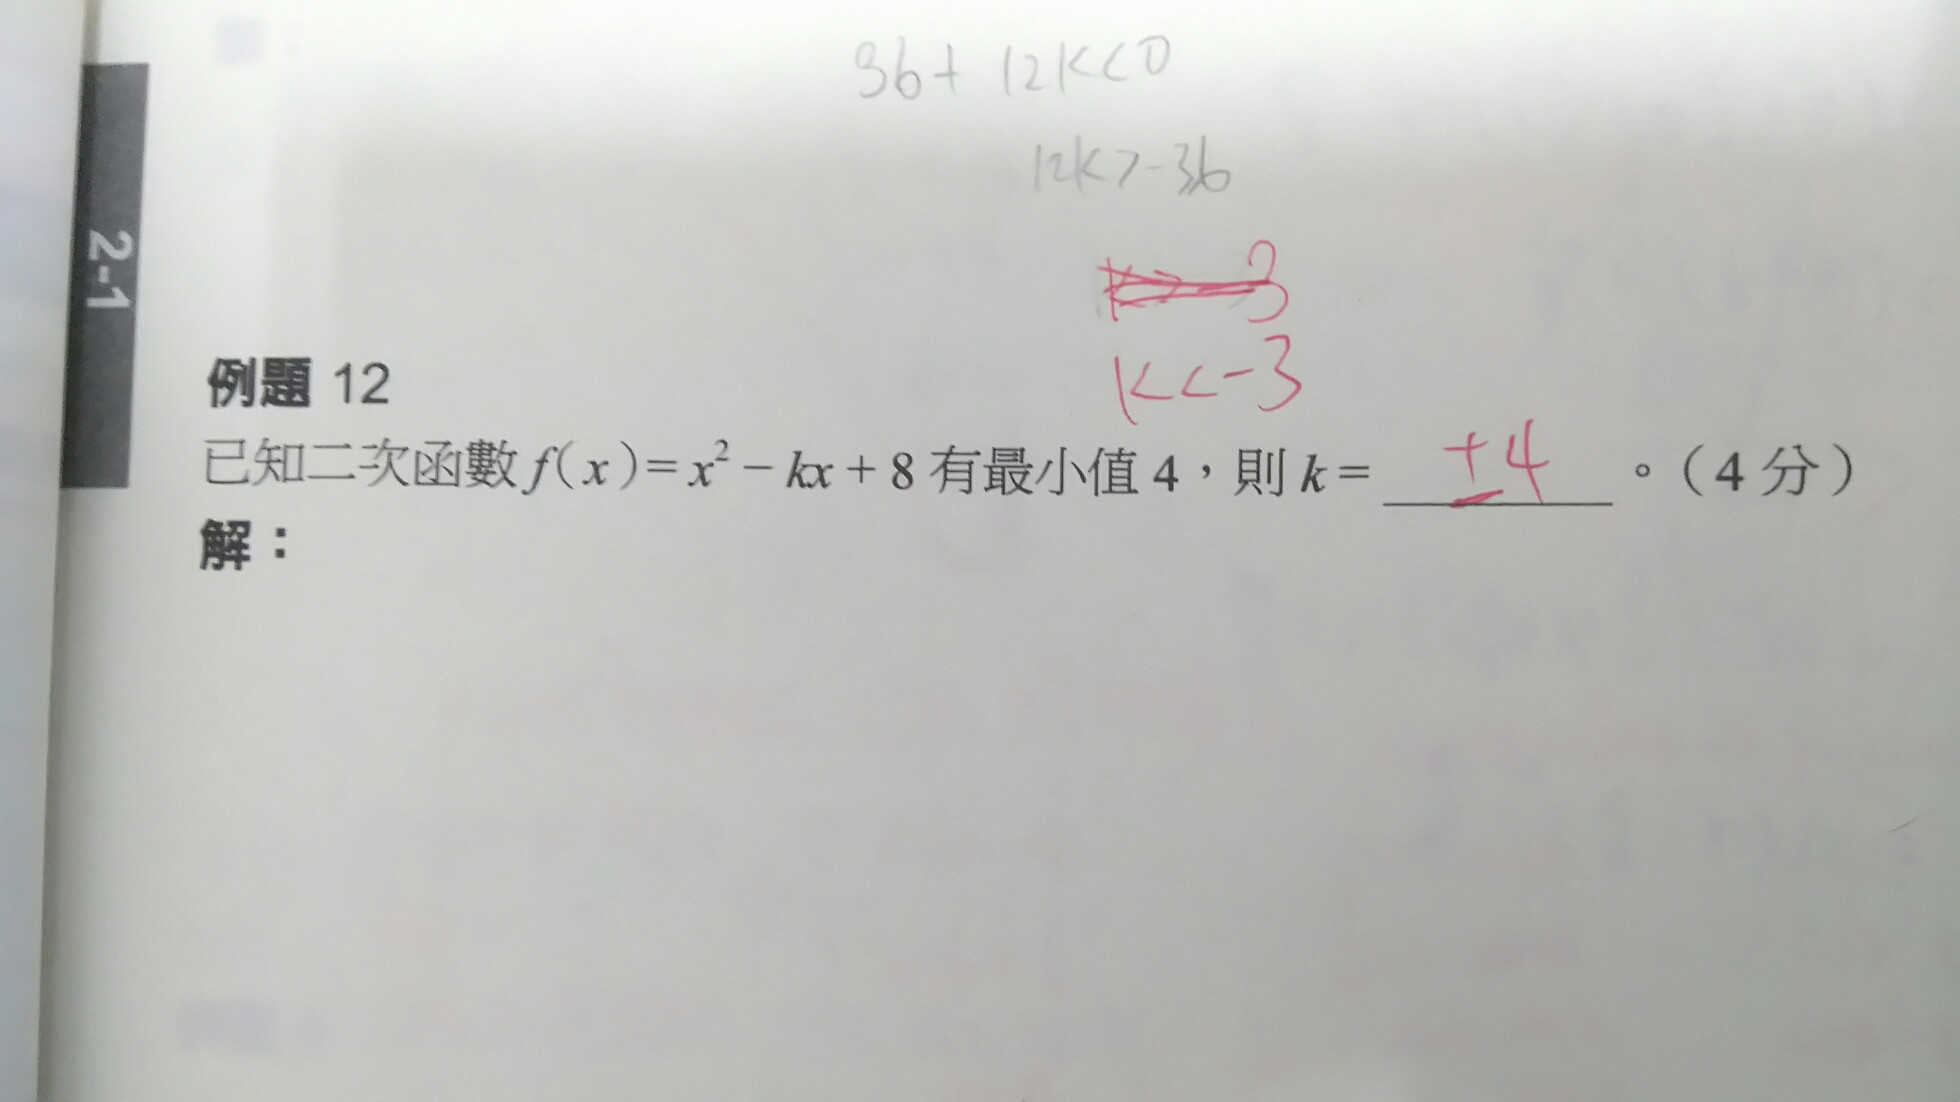 36+12k<0
12k>-36
k>-3
k<-3
2-1
例題 12
已知二次函數 f(x)=x²-kx+8 有最小值 4，則 k= ±4 。（4 分）
解：